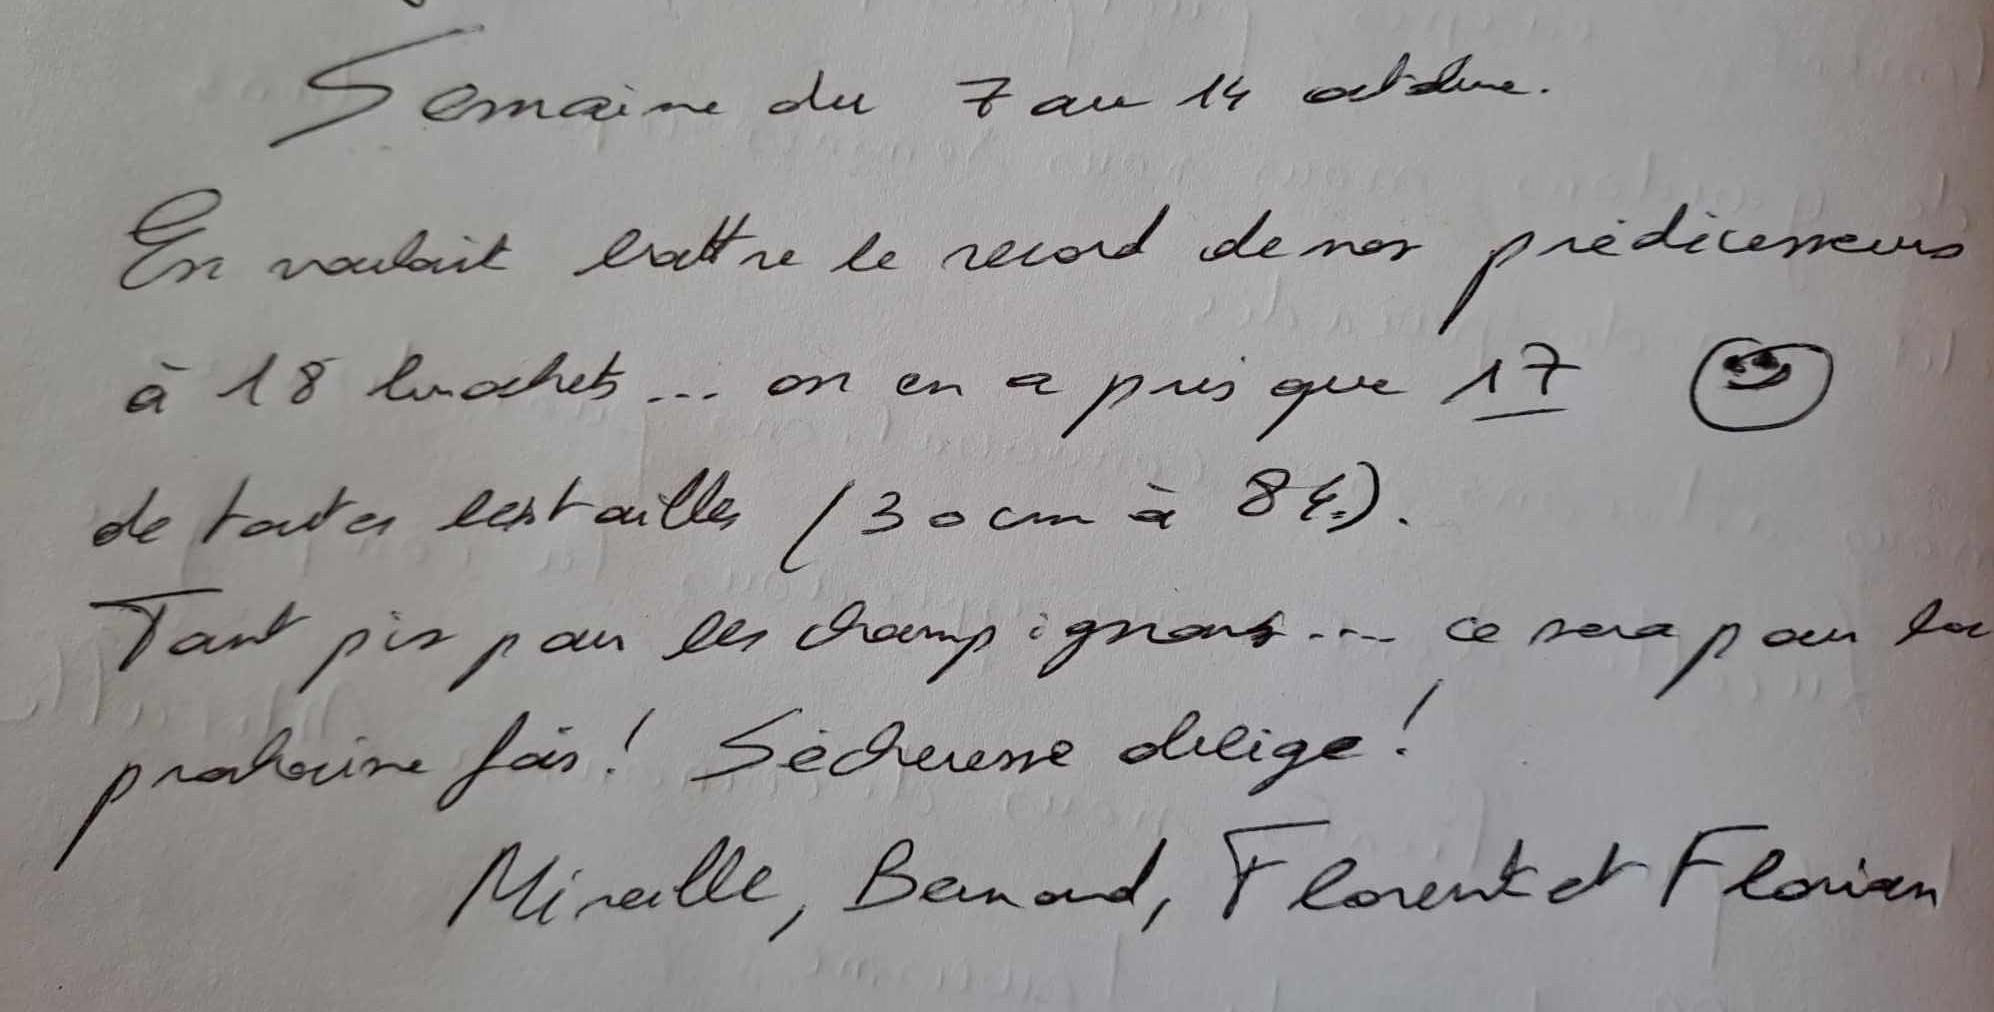 Semaine du 7 au 14 octobre.
En voulait battre le record de nos prédécesseurs
à 18 brochets... on en a pris que 17
de toutes les tailles (30 cm à 84).
Tant pis pour les champignons.... ce sera pour la
prochaine fois! Sécheresse oblige!
Mireille, Bernard, Florent et Florian